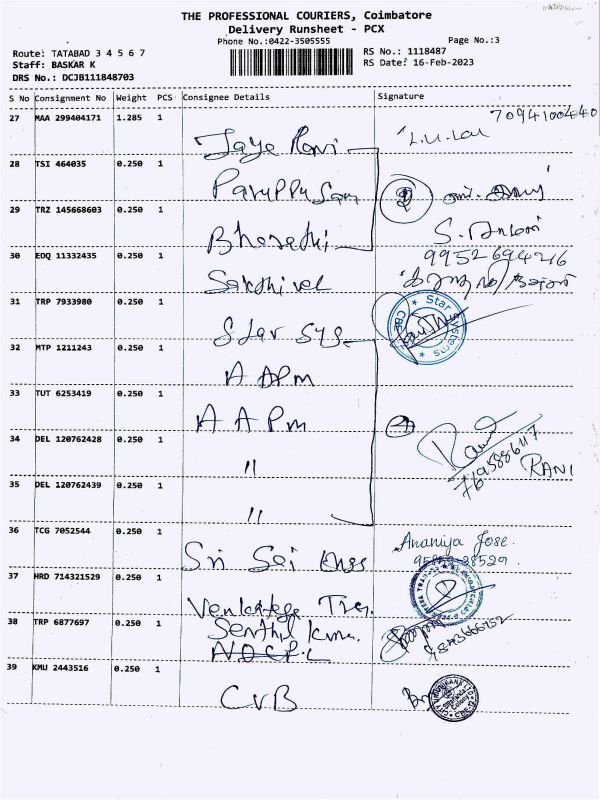 THE PROFESSIONAL COURIERS, Coimbatore
Delivery Runsheet - PCX
Phone No.:0422-3505555
Page No.:3
Route: TATABAD 3 4 5 6 7
Staff: BASKAR K
DRS No.: DCJB111848703
RS No.: 1118487
RS Date: 16-Feb-2023
S No Consignment No Weight PCS Consignee Details Signature
27 MAA 299404171 1.285 1
7094100440
Jaya Rani
28 TSI 464035 0.250 1
Paruppu
29 TRZ 145668603 0.250 1
Bharathi
S.
30 EDQ 11332435 0.250 1
9952694216
Sakthivel
31 TRP 7933980 0.250 1
Star Systems
CBE
Star Sys
32 MTP 1211243 0.250 1
A APM
33 TUT 6253419 0.250 1
A A Pm
34 DEL 120762428 0.250 1
"
RANI
35 DEL 120762439 0.250 1
"
36 TCG 7052544 0.250 1
Ananiya Jose.
Sri Sai
37 HRD 714321529 0.250 1
38 TRP 6877697 0.250 1
Senthil
39 KMU 2443516 0.250 1
CVB